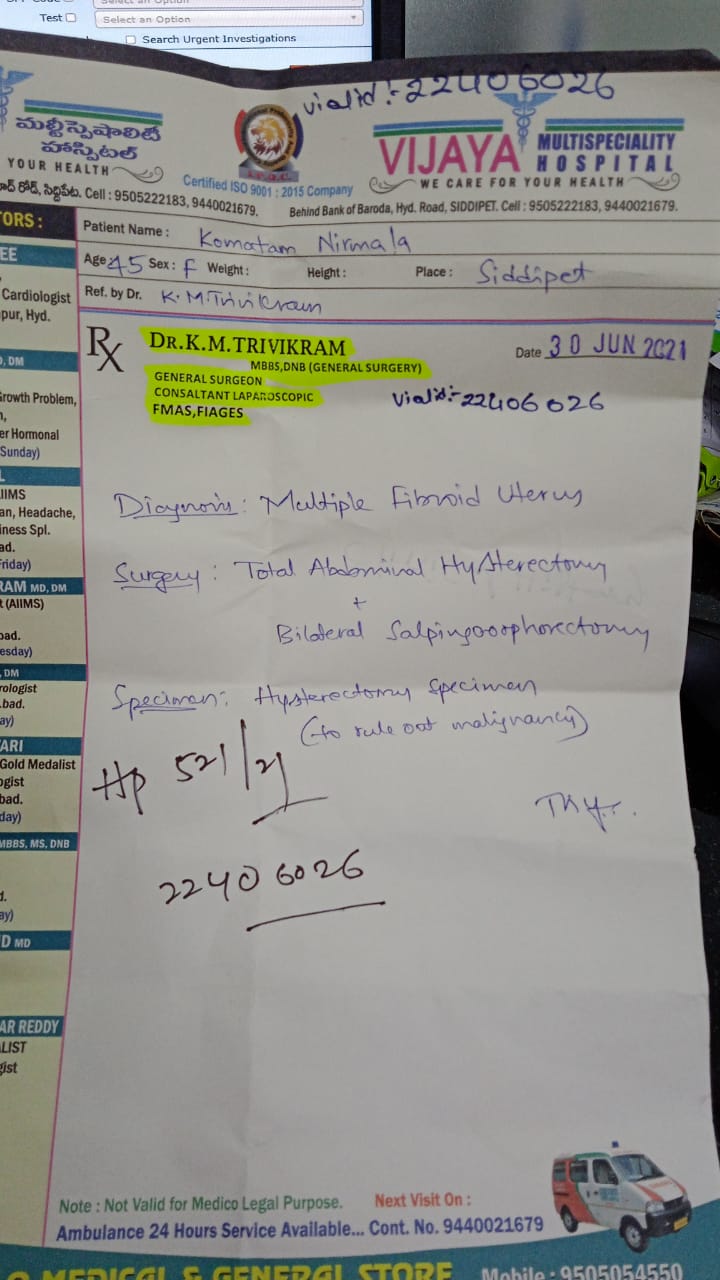 Test
Select an Option
Search Urgent Investigations
vialid:- 22406026
మల్టీస్పెషాలిటీ
హాస్పిటల్
YOUR HEALTH
రోడ్, సిద్దిపేట. Cell : 9505222183, 9440021679.
Certified ISO 9001 : 2015 Company
VIJAYA MULTISPECIALITY
HOSPITAL
WE CARE FOR YOUR HEALTH
Behind Bank of Baroda, Hyd. Road, SIDDIPET. Cell : 9505222183, 9440021679.
TORS :
Patient Name : Komatam Nirmala
Age 45 Sex : F Weight : Height : Place : Siddipet
Ref. by Dr. K.M.Trivikram
EE
Cardiologist
pur, Hyd.
, DM
Growth Problem,
er Hormonal
Sunday)
IIMS
an, Headache,
iness Spl.
ad.
Friday)
RAM MD, DM
t (AIIMS)
bad.
esday)
DM
rologist
.bad.
ay)
ARI
Gold Medalist
ogist
bad.
day)
MBBS, MS, DNB
d.
ay)
D MD
AR REDDY
LIST
gist
Rx
DR.K.M.TRIVIKRAM
MBBS,DNB (GENERAL SURGERY)
GENERAL SURGEON
CONSALTANT LAPAROSCOPIC
FMAS,FIAGES
Date 30 JUN 2021
Vialid:- 22406026
Diagnosis: Multiple Fibroid Uterus
Surgery: Total Abdominal Hysterectomy
+
Bilateral Salpingooophorectomy
Specimen: Hysterectomy Specimen
(to rule out malignancy)
Hp 521/21
22406026
Note : Not Valid for Medico Legal Purpose. Next Visit On :
Ambulance 24 Hours Service Available... Cont. No. 9440021679
MEDICAL & GENERAL STORE Mobile : 9505054550